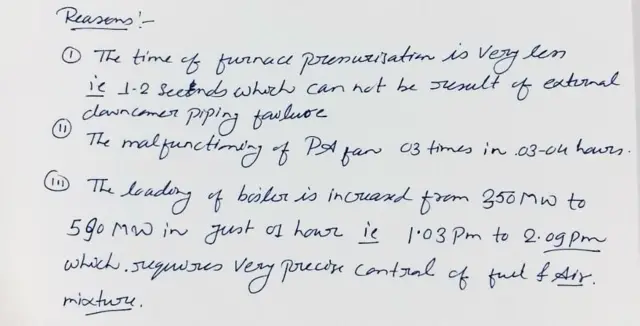 Reasons:-
(i) The time of furnace pressurisation is very less
ie 1-2 Seconds which can not be result of external
downcomer piping failure
(ii) The malfunctioning of PA fan 03 times in .03-04 hours.
(iii) The loading of boiler is increased from 350 MW to
590 MW in just 01 hour ie 1.03 Pm to 2.09 Pm
which requires very precise control of fuel & Air.
mixture.